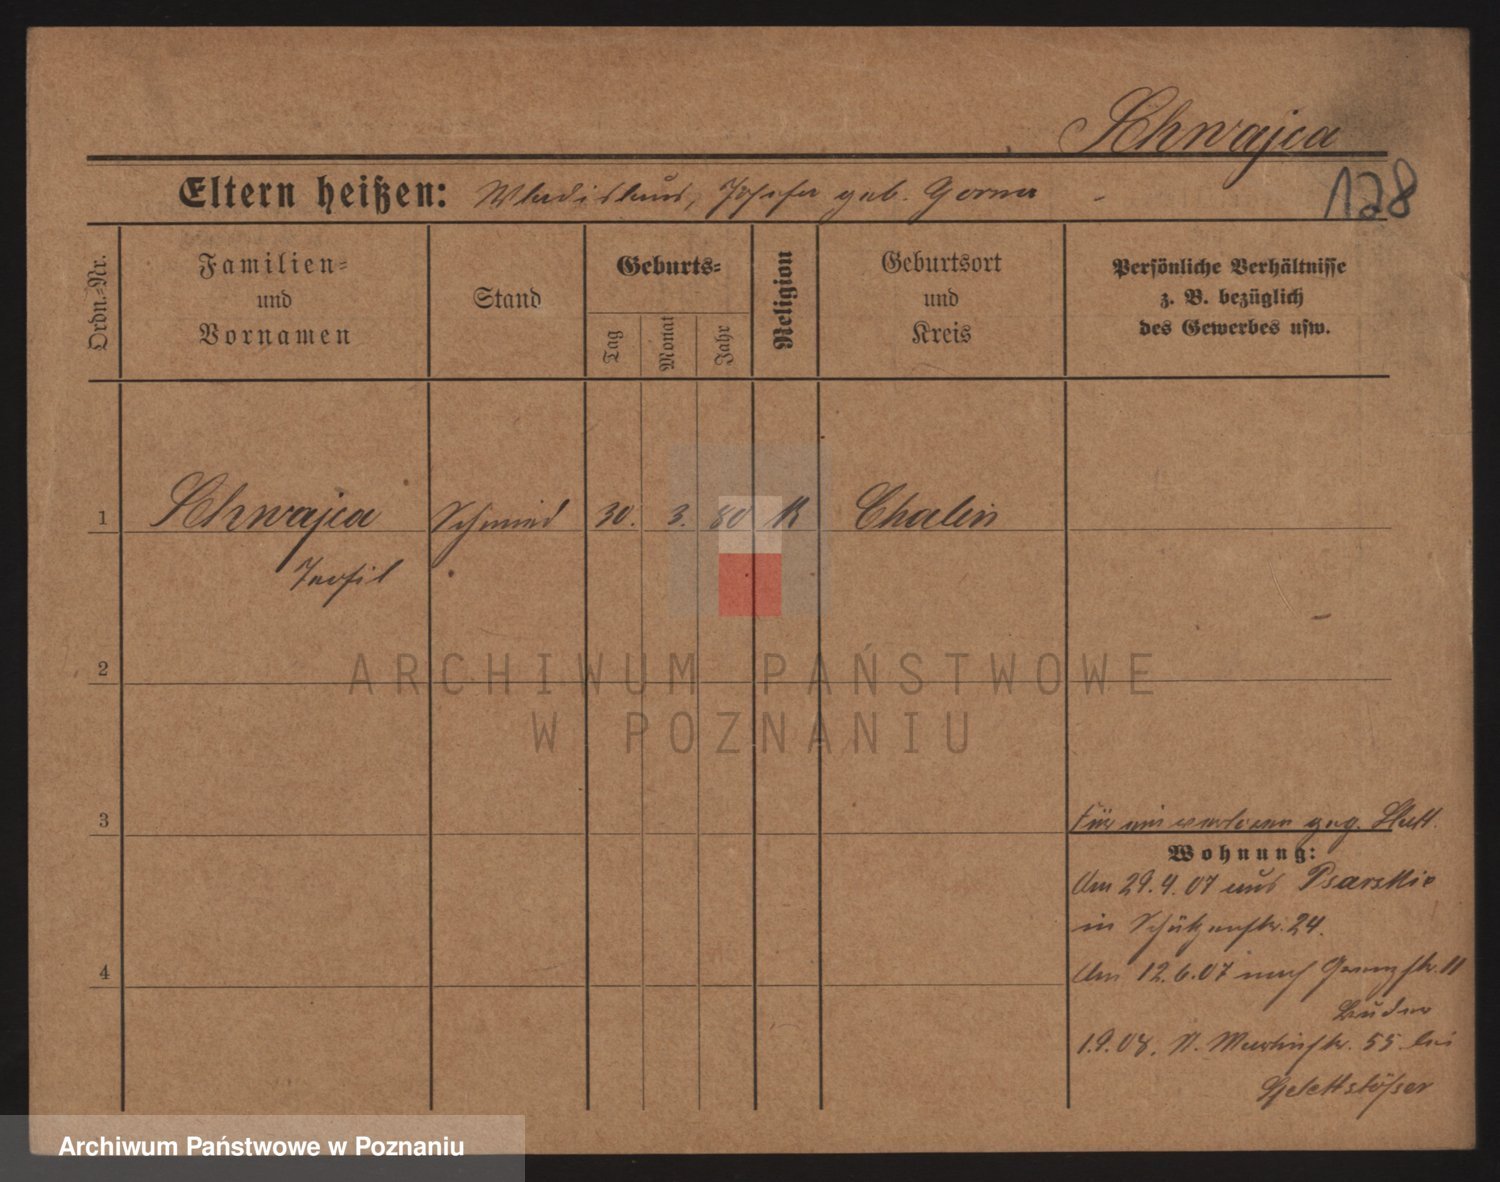 Skhwajca
128
Eltern heißen: Wladislaus, Josefa geb. Gorna
Ordn.-Nr.
Familien-
und
Vornamen
Stand
Geburts-
Tag
Monat
Jahr
Religion
Geburtsort
und
Kreis
Persönliche Verhältnisse
z. B. bezüglich
des Gewerbes usw.
1 Skhwajca Schmied 30. 3. 80 K Chalin
Teofil
ARCHIWUM PAŃSTWOWE
W POZNANIU
2
3
Für geg.
Wohnung:
Am 29.4.07 aus Psarskie
in Schützenstr. 24.
4
Am 12.6.07 nach 11
1.9.08. St. Martinstr. 55 bei
Archiwum Państwowe w Poznaniu